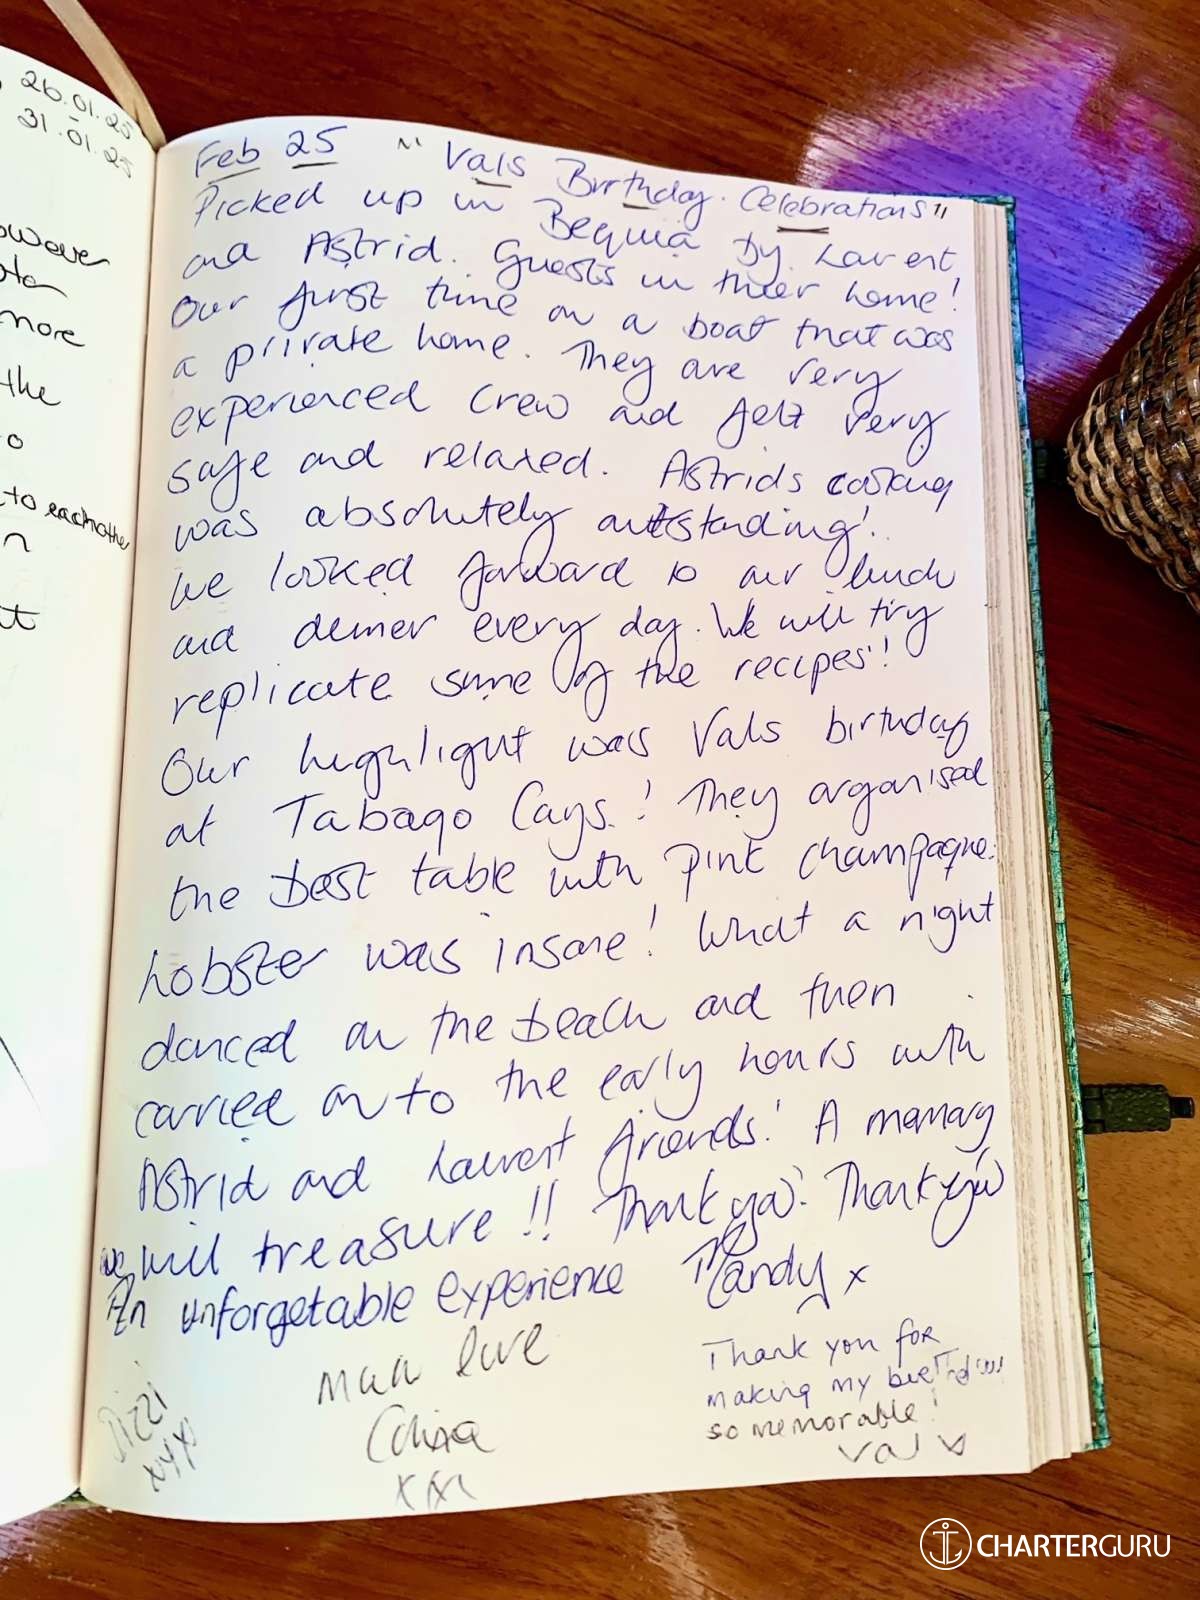 26.01.25
-
31.01.25
owever
more
the
o
to eachother
n
Feb 25 " Vals Birthday. Celebrations"
Picked up in Bequia by Laurent
and Astrid. Guests in their home!
Our first time on a boat that was
a private home. They are very
experienced crew and felt very
safe and relaxed. Astrids cooking
was absolutely outstanding!
We looked forward to our lunch
and dinner every day. We will try
replicate some of the recipes!
Our highlight was Vals birthday
at Tabago Cays! They organised
the best table with pink champagne.
Lobster was insane! What a night
danced on the beach and then
carried on to the early hours with
Astrid and Laurent friends! A memory
we will treasure!! Thank you! Thank you
An unforgetable experience Mandy x
love
xxx
Thank you for
making my
so memorable!
Val
CHARTERGURU